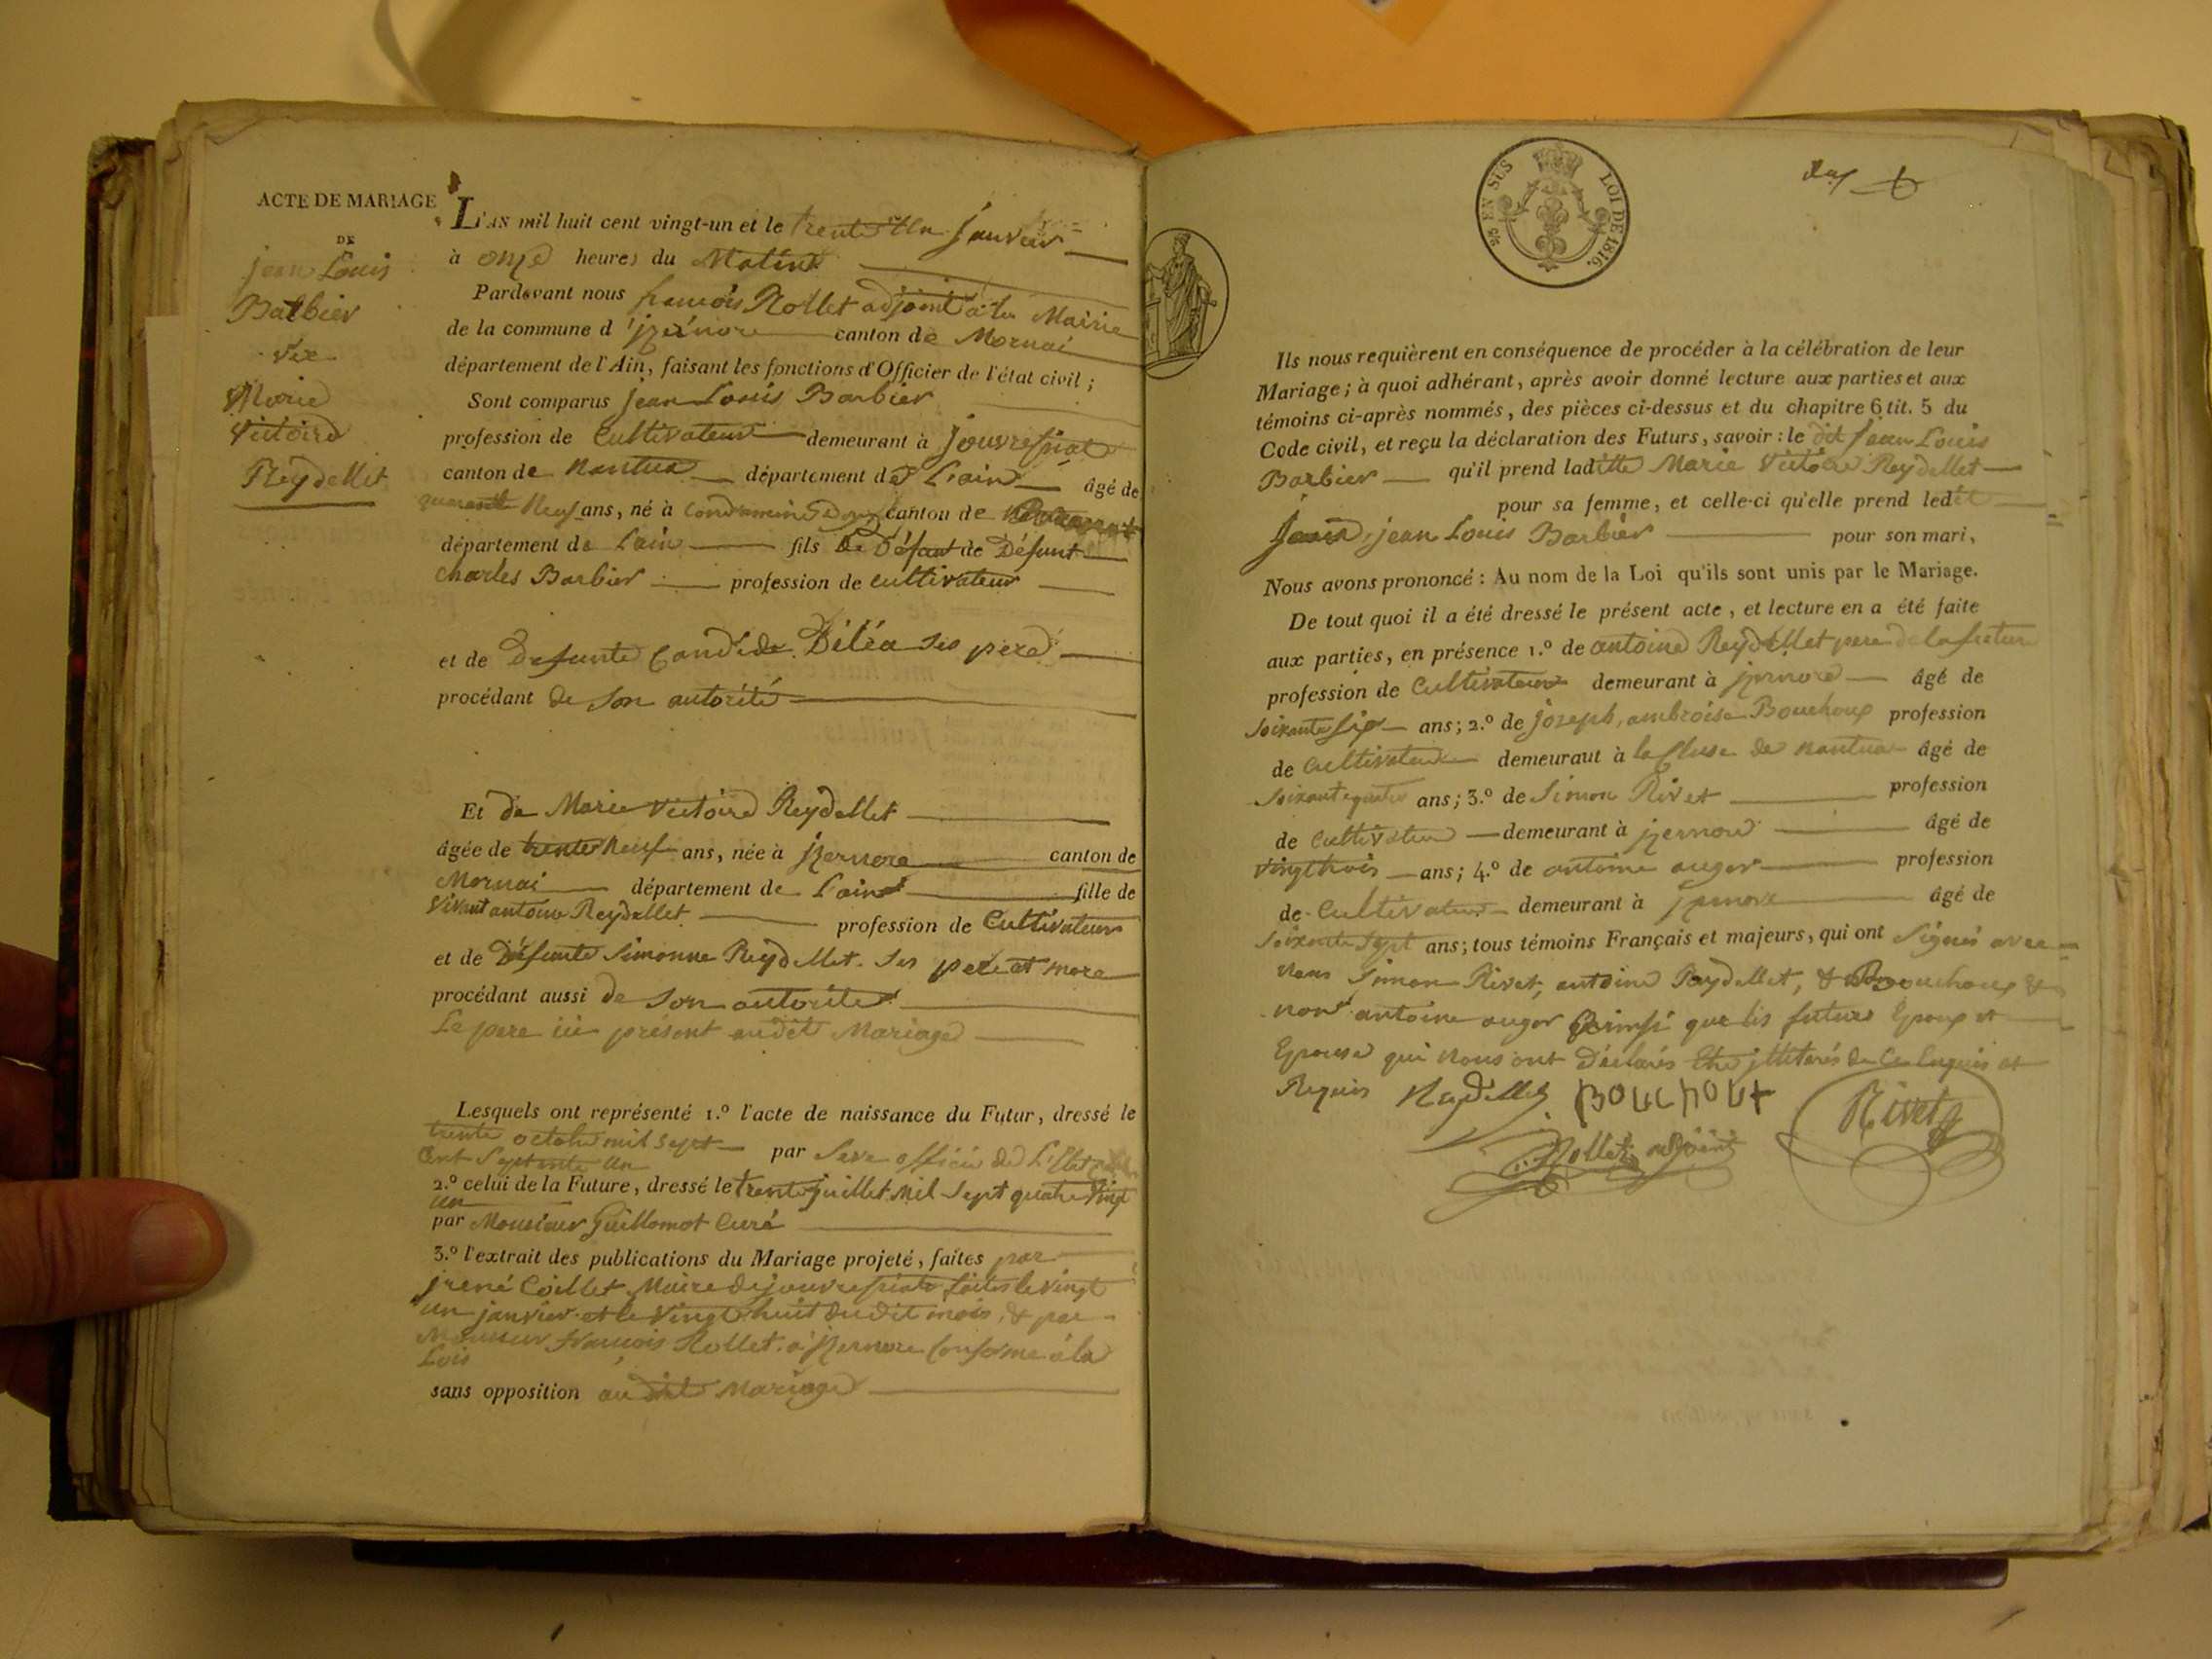 ACTE DE MARIAGE
DE
jean Louis
Barbier
Marie
Victoire
Reydellet
L'AN mil huit cent vingt-un et le trente Un janvier
à onze heures du Matin
Pardevant nous francois Rollet adjoint a la Mairie
de la commune d'izernore canton de Mornai
département de l'Ain, faisant les fonctions d'Officier de l'état civil ;
Sont comparus jean Louis Barbier
profession de Cultivateur demeurant à jouvresiat
canton de Nantua département de L'ain âgé de
quarante Neuf ans, né à canton de
département de Lain fils de Défunt de Défunt
charles Barbier profession de cultivateur
et de Defunte Candide Biléa ses pere
procédant de Son autorité
Et de Marie Victoire Reydellet
âgée de trente Neuf ans, née à izernore canton de
Mornai département de Lain fille de
vivant antoine Reydellet profession de Cultivateur
et de Défunte Simonne Reydellet ses pere et mere
procédant aussi de Son autorité
Le pere ici présent audit Mariage
Lesquels ont représenté 1.º l'acte de naissance du Futur, dressé le
trente octobre mil sept par officier de L'Etat
Cent Septante Un
2.º celui de la Future, dressé le trente juillet Mil Sept quatre Vingt
un
par Monsieur Guillomot Curé
3.º l'extrait des publications du Mariage projeté, faites par
jrené Coillet Maire de jouvresiat faites le vingt
un janvier et le Vingt huit du dit mois, & par
Monsieur francois Rollet a izernore Conforme à la
Lois
sans opposition au dit Mariage
5/5 EN SUS LOI DE 1816.
Ils nous requièrent en conséquence de procéder à la célébration de leur
Mariage ; à quoi adhérant, après avoir donné lecture aux parties et aux
témoins ci-après nommés, des pièces ci-dessus et du chapitre 6 tit. 5 du
Code civil, et reçu la déclaration des Futurs, savoir : le dit jean Louis
Barbier qu'il prend laditte Marie Victoire Reydellet
pour sa femme, et celle-ci qu'elle prend ledit
jean Louis Barbier pour son mari,
Nous avons prononcé : Au nom de la Loi qu'ils sont unis par le Mariage.
De tout quoi il a été dressé le présent acte, et lecture en a été faite
aux parties, en présence 1.º de antoine Reydellet pere de la future
profession de Cultivateur demeurant à izernore âgé de
Soixante six ans ; 2.º de joseph ambroise Bouchoux profession
de Cultivateur demeurant à la Cluse de Nantua âgé de
Soixante quatre ans ; 3.º de Simon Rivet profession
de Cultivateur demeurant à izernore âgé de
vingt trois ans ; 4.º de antoine auger profession
de Cultivateur demeurant à izernore âgé de
Soixante Sept ans ; tous témoins Français et majeurs, qui ont Signés avec
nous Simon Rivet, antoine Reydellet, & Bouchoux &
non antoine auger ainsi que les futurs Epoux et
Epouse qui Nous ont Déclarés Etre jlliterés de Ce Enquis et
Requis Reydellet BOUCHOUX Rivet
Rollet adjoint